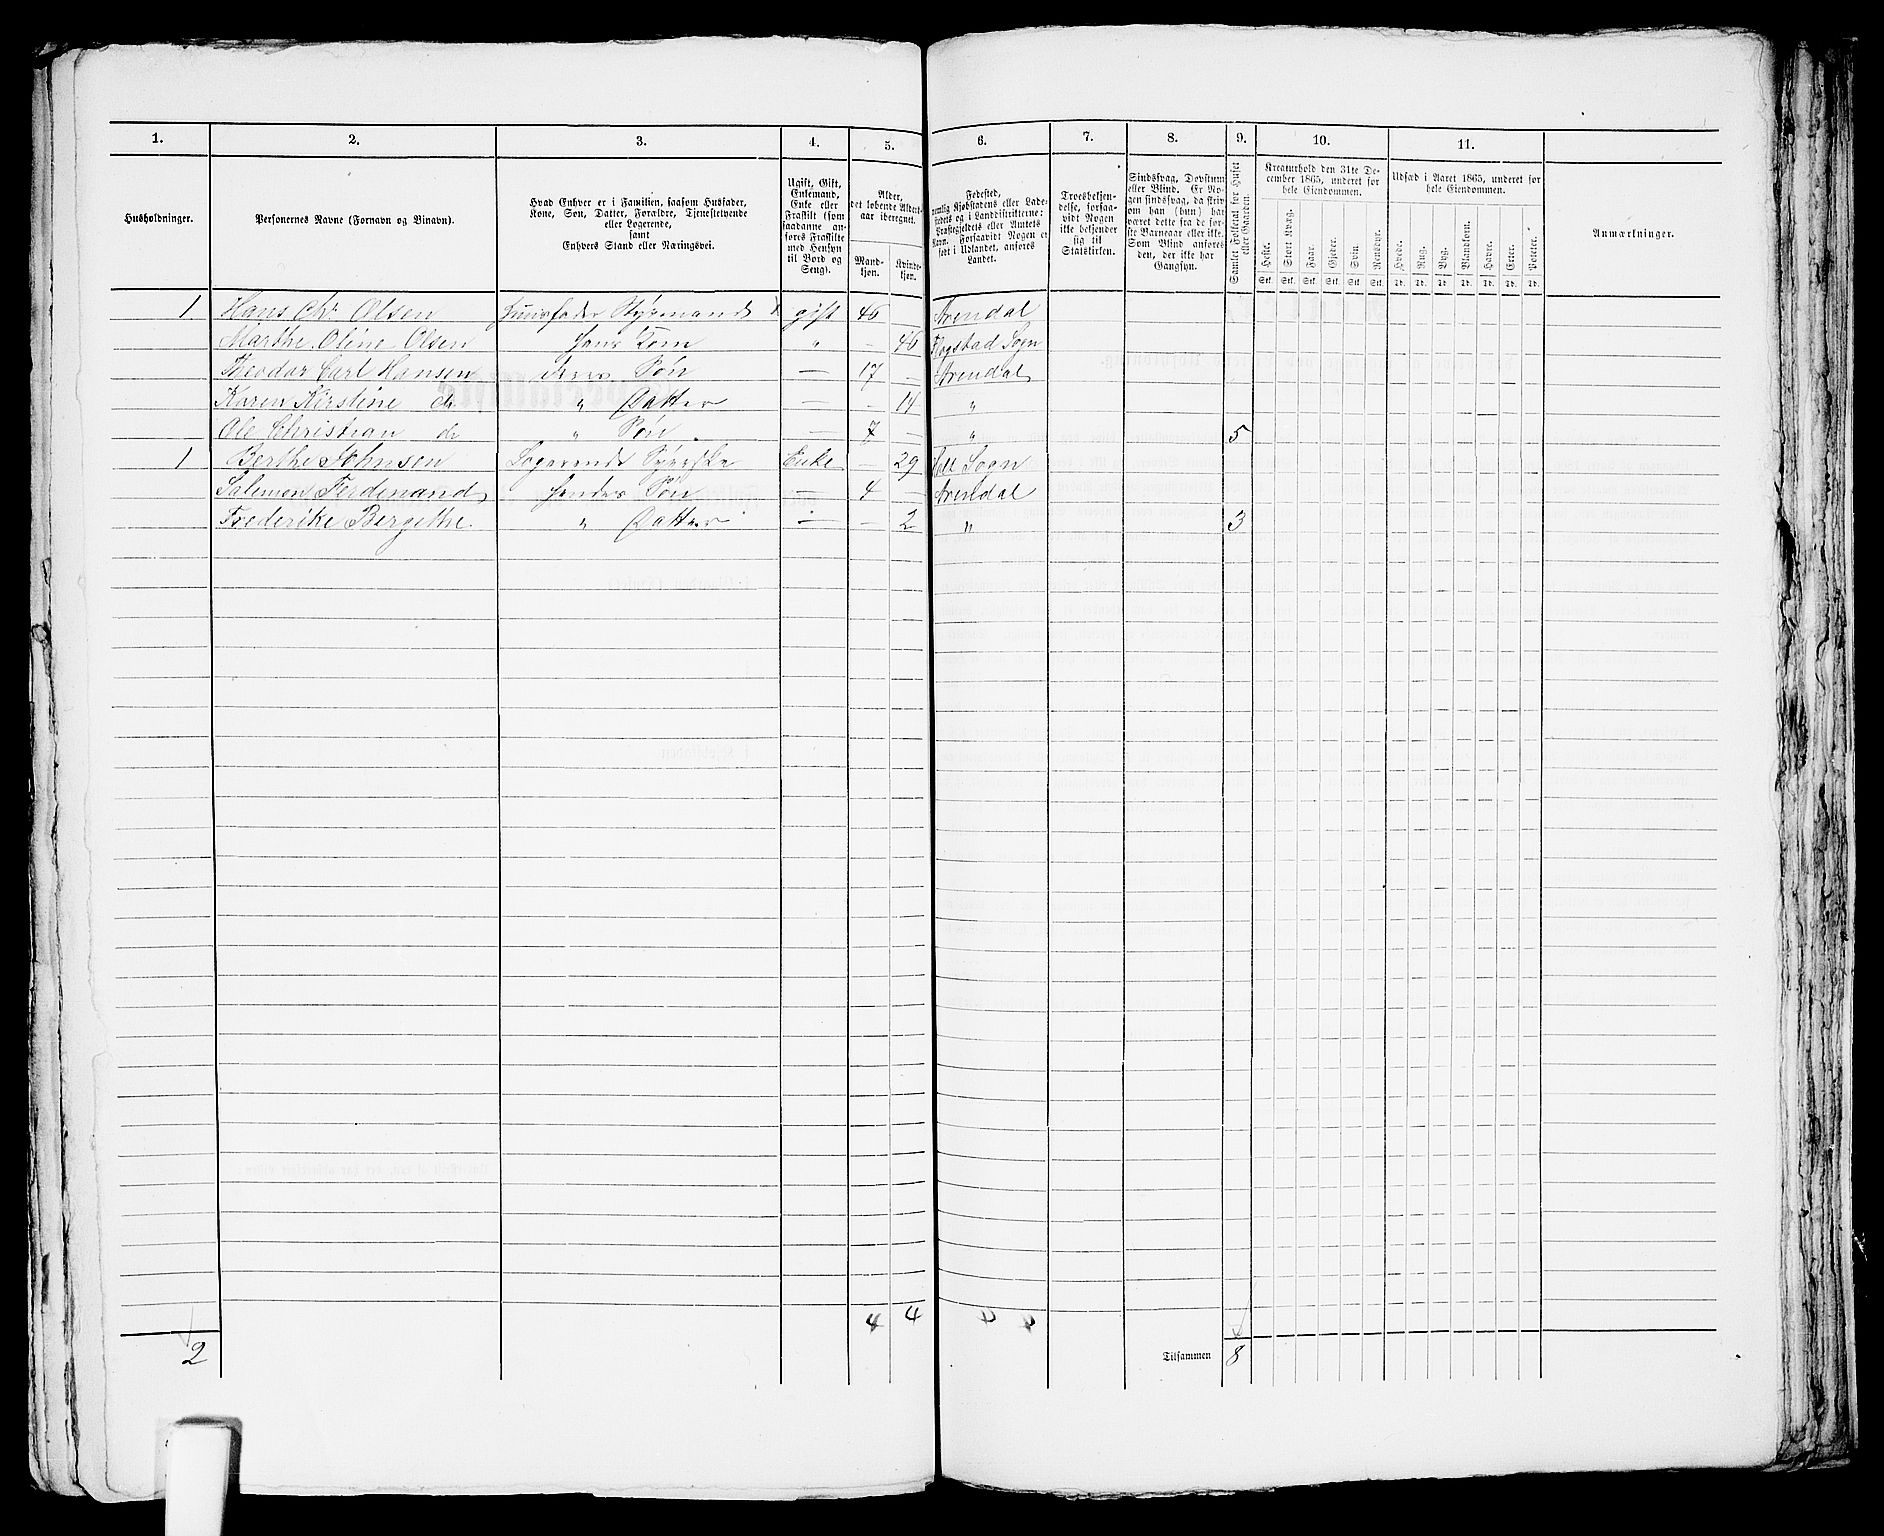 1. 2. 3. 4. 5. 6. 7. 8. 9. 10. 11.
Husholdninger.
Personernes Navne (Fornavn og Binavn).
Hvad Enhver er i Familien, saasom Husfader,
Kone, Søn, Datter, Forældre, Tjenestetyende
eller Logerende,
samt
Enhvers Stand eller Næringsvei.
Ugift, Gift,
Enkemand,
Enke eller
Fraskilt (som
saadanne an-
føres Fraskilte
med Hensyn
til Bord og
Seng).
Alder,
det løbende Alders-
aar iberegnet.
Mand-
kjøn.
Kvinde-
kjøn.
Fødested,
nemlig Kjøbstadens eller Lade-
stedets og i Landdistrikterne:
Præstegjeldets eller Amtets
Navn. Forsaavidt Nogen er
født i Udlandet, anføres
Landet.
Troesbekjen-
delse, forsaa-
vidt Nogen
ikke bekjender
sig til
Statskirken.
Sindssvag, Døvstum
eller Blind. Er No-
gen sindssvag, da skriv
om han (hun) har
været dette fra de før-
ste Barneaar eller ikke.
Som Blind anføres
den, der ikke har
Gangsyn.
Samlet Folketal for Huset
eller Gaarden.
Kreaturhold den 31te De-
cember 1865, underet for
hele Eiendommen.
Heste. Stort Kvæg. Faar. Gjeder. Svin. Rensdyr.
Stk. Stk. Stk. Stk. Stk. Stk.
Udsæd i Aaret 1865, underet for
hele Eiendommen.
Hvede. Rug. Byg. Blandkorn. Havre. Erter. Poteter.
Td. Td. Td. Td. Td. Td. Td.
Anmærkninger.
1 Hans Chr Olsen Huusfader Styrmand gift 46 Arendal
Marthe Oline Olsen Hans Kone " - 46 Sogn
Theodor Carl Hansen deres Søn — 17 — Arendal
Karen Kirstine do " Datter — - 14 "
Ole Christian do " Søn — 7 — " 5
1 Berthe Johnsen Logerende Syerske Enke - 29 Holt Sogn
Salemon Ferdinand hendes Søn — 4 — Arendal
Frederike Bergithe " Datter — - 2 " 3
4 4
2
Tilsammen 8